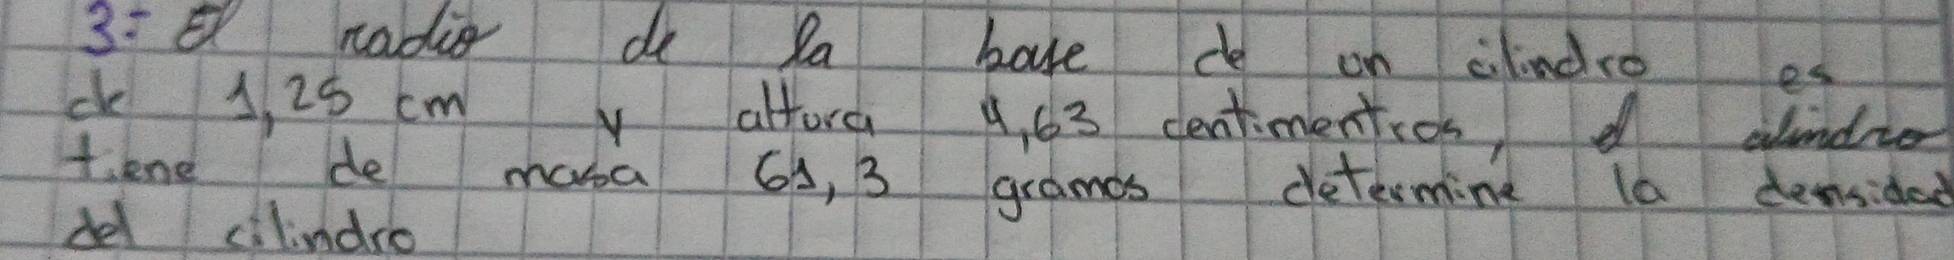 3- El radio de la base de un cilindro es
de 1,25 cm y altura 4,63 centimentros, el cilindro
tiene de masa 61,3 gramos determine la densidad
del cilindro